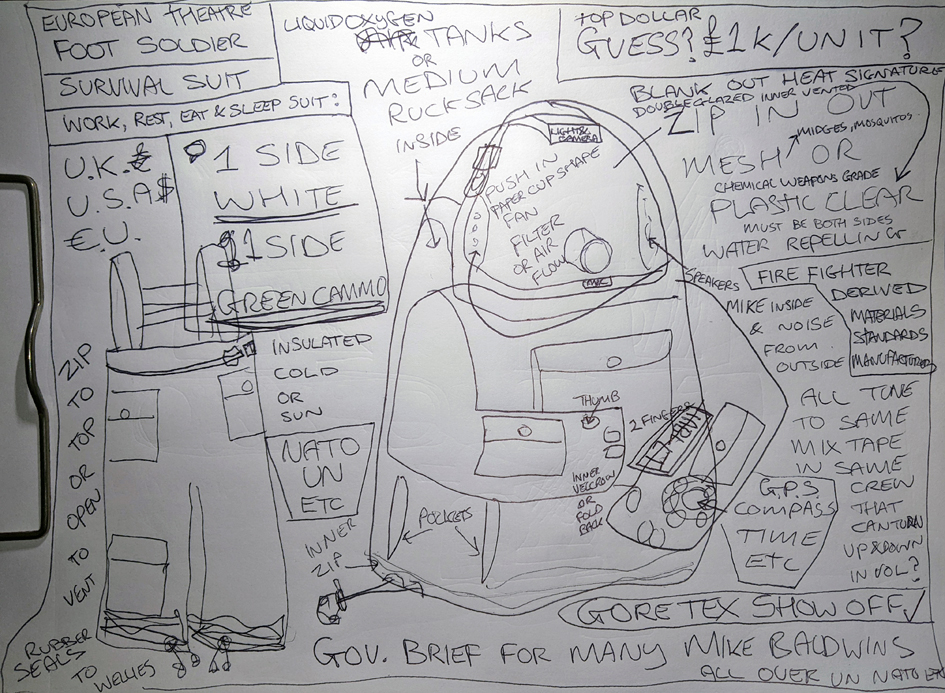 EUROPEAN THEATRE
FOOT SOLDIER
SURVIVAL SUIT
WORK, REST, EAT & SLEEP SUIT:
U.K. £
U.S.A $
€.U.
1 SIDE
WHITE
1 SIDE
GREEN CAMMO
LIQUID OXYGEN
TANKS
OR
MEDIUM
RUCKSACK
INSIDE
TOP DOLLAR
GUESS? £1K/UNIT?
BLANK OUT HEAT SIGNATURE
DOUBLE GLAZED INNER VENTED
ZIP IN OUT
MIDGES, MOSQUITOS
MESH OR
CHEMICAL WEAPONS GRADE
PLASTIC CLEAR
MUST BE BOTH SIDES
WATER REPELLING
LIGHT &
CAMERA
PUSH IN
PAPER CUP SHAPE
FAN
FILTER
OR AIR
FLOW
MIC
SPEAKERS
MIKE INSIDE
& NOISE
FROM
OUTSIDE
FIRE FIGHTER
DERIVED
MATERIALS
STANDARDS
MANUFACTURED
ALL TUNE
TO SAME
MIX TAPE
IN SAME
CREW
THAT
CAN TURN
UP & DOWN
IN VOL?
ZIP
TO
TOP
OR
OPEN
TO
VENT
INSULATED
COLD
OR
SUN
NATO
UN
ETC
THUMB
2 FINGERR
INNER
VELCROW
OR
FOLD
BACK
POCKETS
G.P.S.
COMPASS
TIME
ETC
INNER
ZIP
RUBBER
SEALS
TO
WELLIES
GORETEX SHOW OFF
GOV. BRIEF FOR MANY MIKE BALDWINS
ALL OVER UN NATO ETC